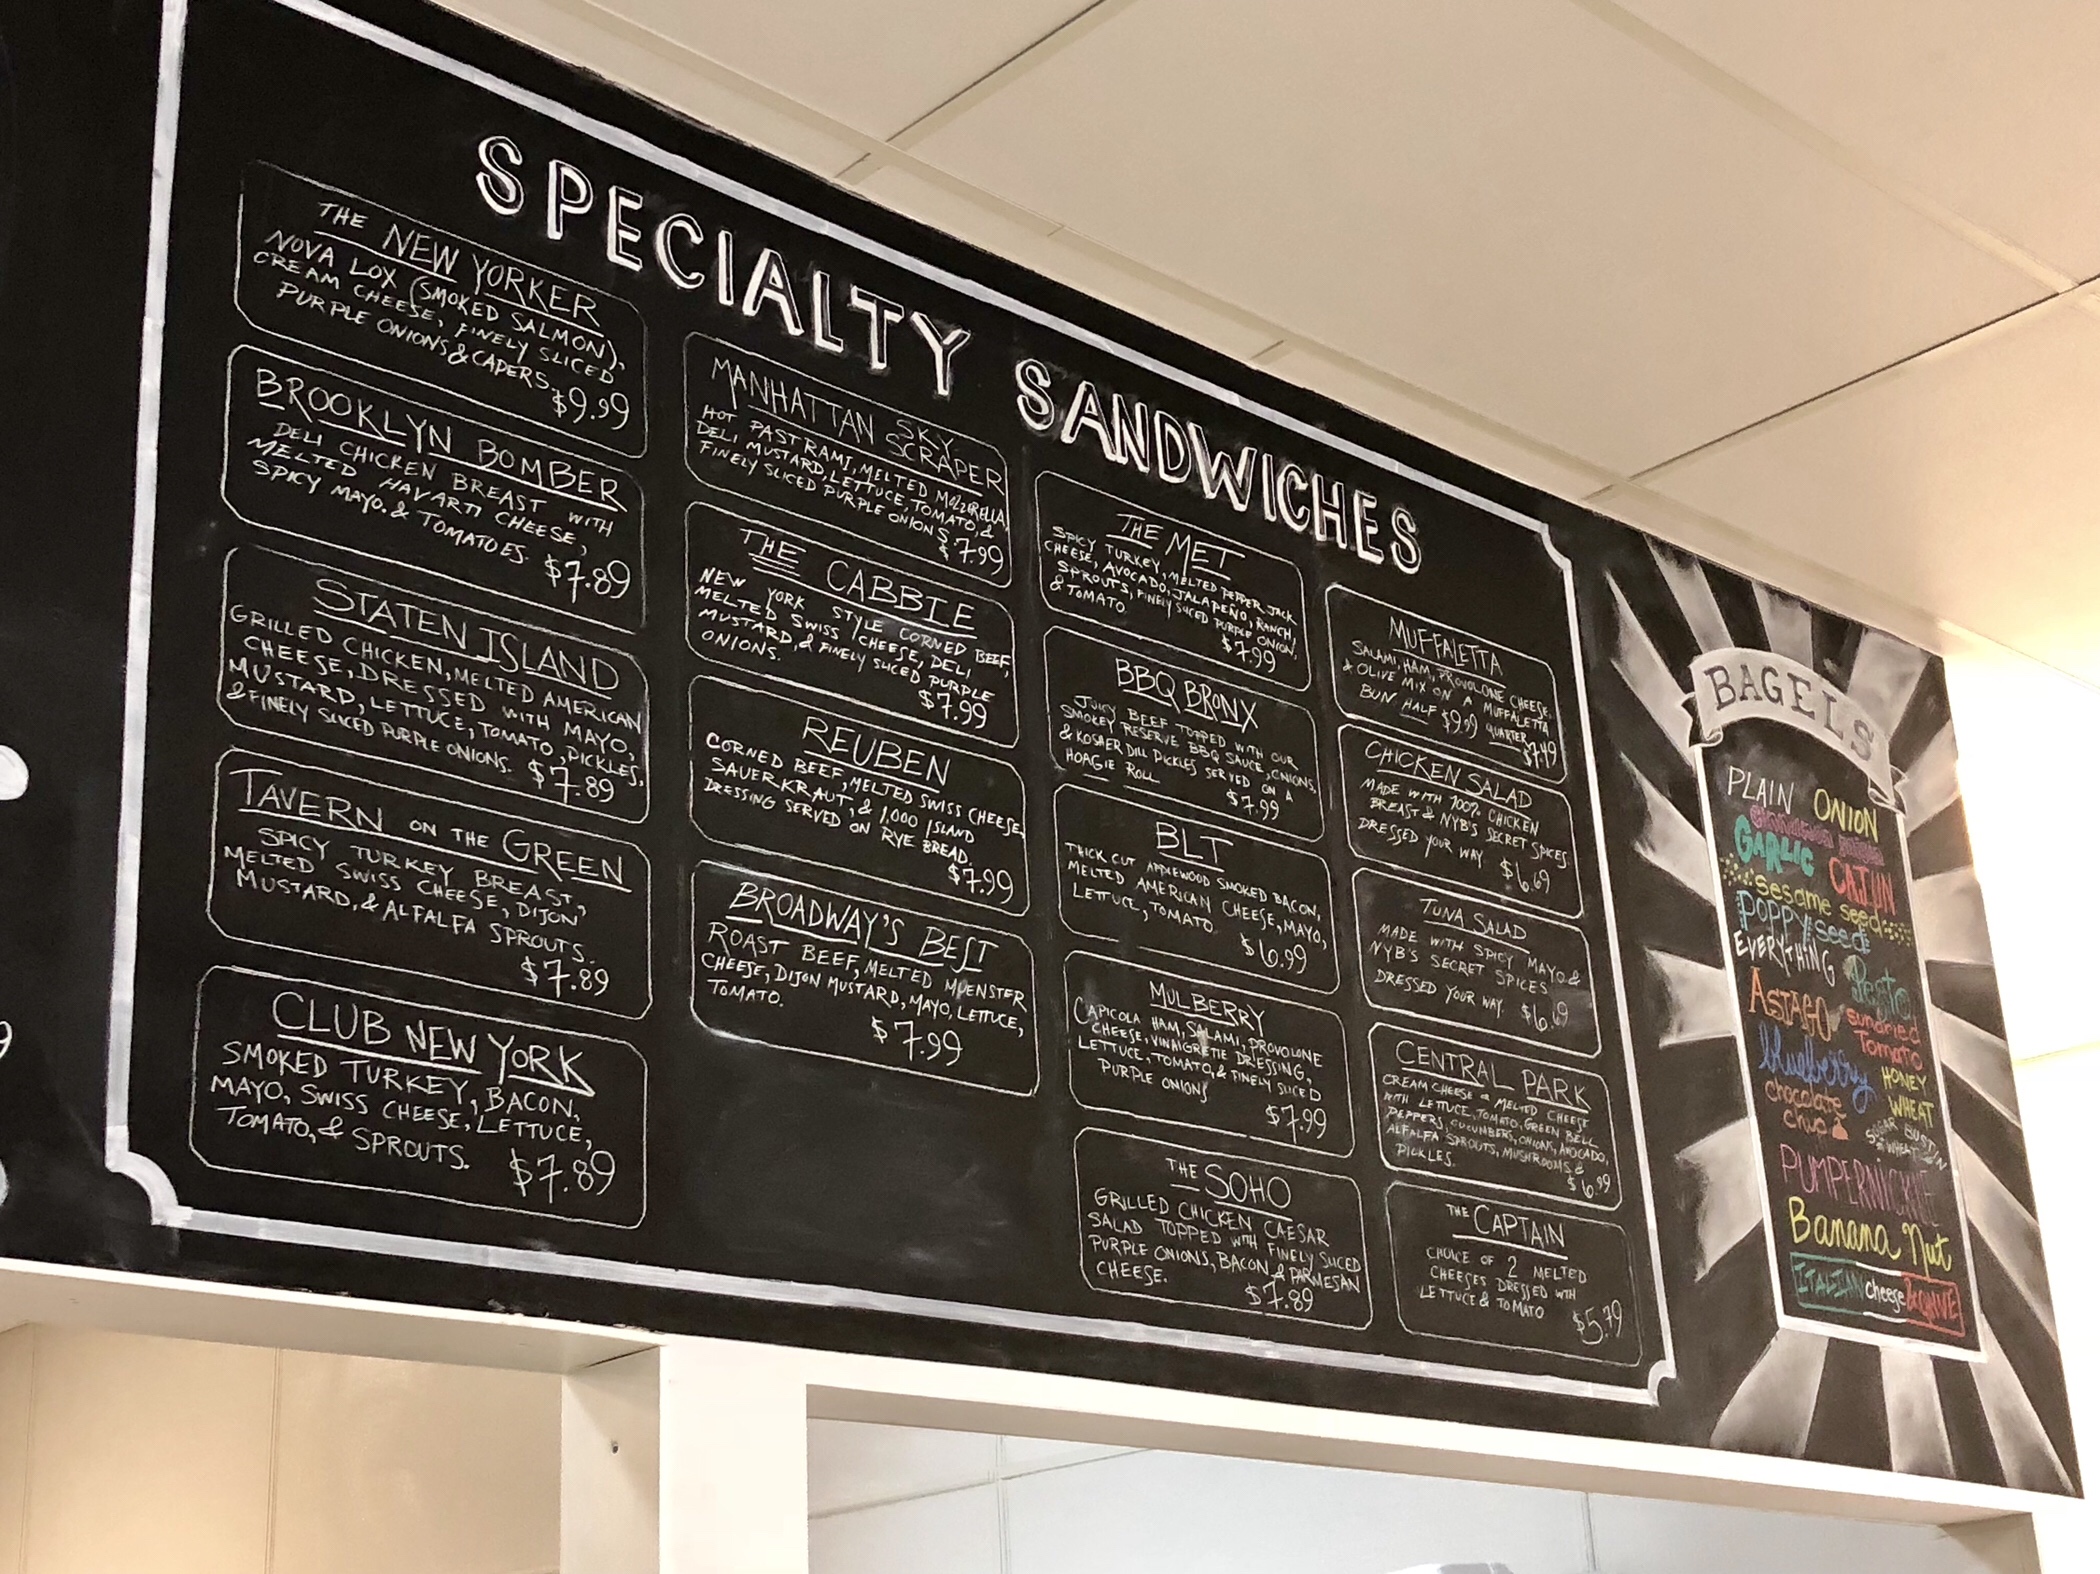 SPECIALTY SANDWICHES
THE NEW YORKER
NOVA LOX (SMOKED SALMON),
CREAM CHEESE, FINELY SLICED
PURPLE ONIONS & CAPERS.
$9.99
BROOKLYN BOMBER
DELI CHICKEN BREAST WITH
MELTED HAVARTI CHEESE,
SPICY MAYO. & TOMATOES.
$7.89
STATEN ISLAND
GRILLED CHICKEN, MELTED AMERICAN
CHEESE, DRESSED WITH MAYO,
MUSTARD, LETTUCE, TOMATO, PICKLES,
& FINELY SLICED PURPLE ONIONS.
$7.89
TAVERN ON THE GREEN
SPICY TURKEY BREAST,
MELTED SWISS CHEESE, DIJON
MUSTARD, & ALFALFA SPROUTS.
$7.89
CLUB NEW YORK
SMOKED TURKEY, BACON,
MAYO, SWISS CHEESE, LETTUCE,
TOMATO, & SPROUTS.
$7.89
MANHATTAN SKY
SCRAPER
HOT PASTRAMI, MELTED MOZZERELLA,
DELI MUSTARD, LETTUCE, TOMATO, &
FINELY SLICED PURPLE ONIONS
$7.99
THE CABBIE
NEW YORK STYLE CORNED BEEF,
MELTED SWISS CHEESE, DELI
MUSTARD, & FINELY SLICED PURPLE
ONIONS.
$7.99
REUBEN
CORNED BEEF, MELTED SWISS CHEESE,
SAUERKRAUT, & 1,000 ISLAND
DRESSING SERVED ON RYE BREAD.
$7.99
BROADWAY'S BEST
ROAST BEEF, MELTED MUENSTER
CHEESE, DIJON MUSTARD, MAYO, LETTUCE,
TOMATO.
$7.99
THE MET
SPICY TURKEY, MELTED PEPPER JACK
CHEESE, AVOCADO, JALAPEÑO, RANCH,
SPROUTS, FINELY SLICED PURPLE ONION,
& TOMATO
$7.99
BBQ BRONX
JUICY BEEF TOPPED WITH OUR
SMOKEY RESERVE BBQ SAUCE, ONIONS,
& KOSHER DILL PICKLES SERVED ON A
HOAGIE ROLL
$7.99
BLT
THICK CUT APPLEWOOD SMOKED BACON,
MELTED AMERICAN CHEESE, MAYO,
LETTUCE, TOMATO.
$6.99
MULBERRY
CAPICOLA HAM, SALAMI, PROVOLONE
CHEESE, VINAIGRETTE DRESSING,
LETTUCE, TOMATO, & FINELY SLICED
PURPLE ONIONS
$7.99
THE SOHO
GRILLED CHICKEN CAESAR
SALAD TOPPED WITH FINELY SLICED
PURPLE ONIONS, BACON & PARMESAN
CHEESE.
$7.89
MUFFALETTA
SALAMI, HAM, PROVOLONE CHEESE,
& OLIVE MIX ON A MUFFALETTA
BUN HALF $9.99 QUARTER $7.49
CHICKEN SALAD
MADE WITH 100% CHICKEN
BREAST & NYB'S SECRET SPICES
DRESSED YOUR WAY
$6.69
TUNA SALAD
MADE WITH SPICY MAYO &
NYB'S SECRET SPICES
DRESSED YOUR WAY.
$6.69
CENTRAL PARK
CREAM CHEESE & MELTED CHEESE
WITH LETTUCE, TOMATO, GREEN BELL
PEPPERS, CUCUMBERS, ONIONS, AVOCADO,
ALFALFA SPROUTS, MUSHROOMS &
PICKLES.
$6.99
THE CAPTAIN
CHOICE OF 2 MELTED
CHEESES DRESSED WITH
LETTUCE & TOMATO
$5.79
BAGELS
PLAIN ONION
GARLIC CAJUN
sesame seed
POPPY seed
EVERYTHING
Pesto
ASIAGO sundried
Tomato
blueberry HONEY
WHEAT
chocolate
chip
PUMPERNICKLE
Banana Nut
ITALIAN cheese